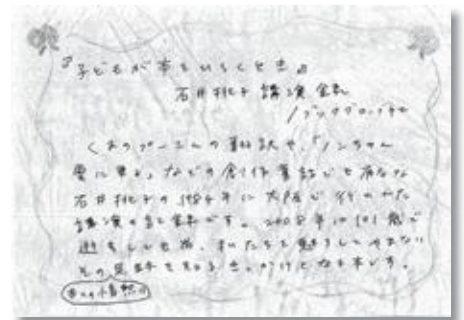 『子どもが本をひらくとき』
石井桃子講演録
/ブックグローブ社
くまのプーさんの翻訳や、「ノンちゃん
雲に乗る」などの創作童話でも有名な
石井桃子の1984年に大阪で行われた
講演の記録です。2008年に101歳で
逝去した後、私たちを魅了してやまない
その足跡を知るきっかけとなる本です。